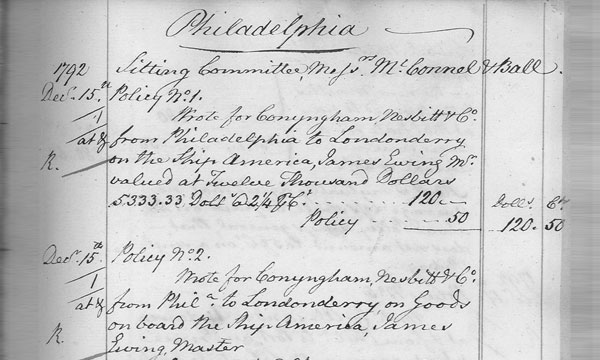 Philadelphia
1792 Sitting Committee, Messrs. McConnel & Ball.
Decr. 15th Policy No. 1.
1 Wrote for Conyngham, Nesbitt & Co.
at & from Philadelphia to Londonderry
R. on the Ship America, James Ewing Mr.
valued at Twelve Thousand Dollars
5333.33 Dolls. @ 2¼ ⅌ Ct. 120.— Dolls. Cts
Policy 50 120.50
Decr. 15th Policy No. 2.
1 Wrote for Conyngham, Nesbitt & Co.
at & from Phila. to Londonderry on Goods
on board the Ship America, James
R. Ewing, Master